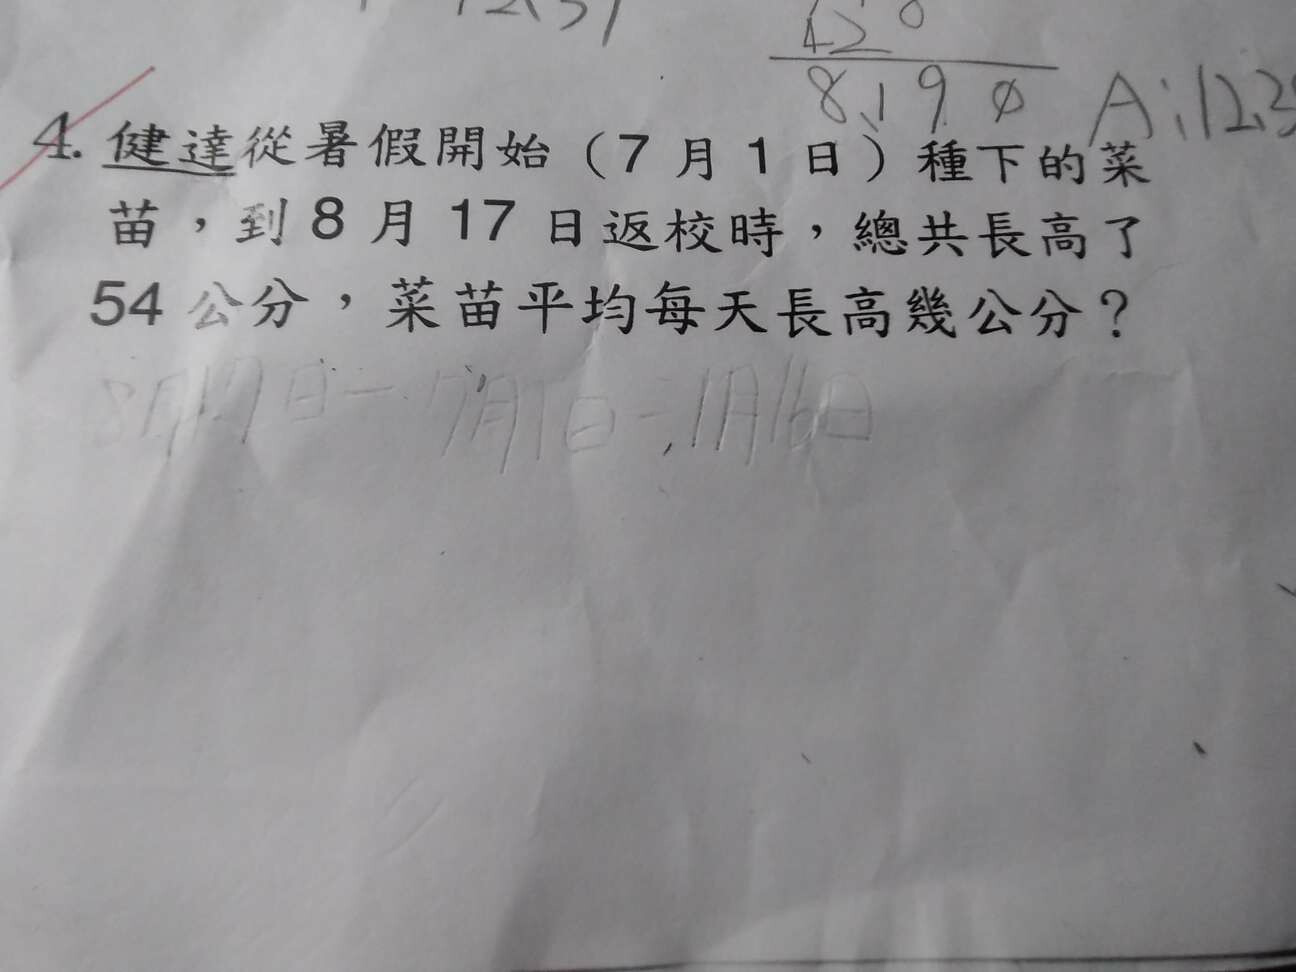 428
8190
A:12.3
4. 健達從暑假開始（7月1日）種下的菜
苗，到8月17日返校時，總共長高了
54公分，菜苗平均每天長高幾公分？
8月17日－7月1日＝1月16日